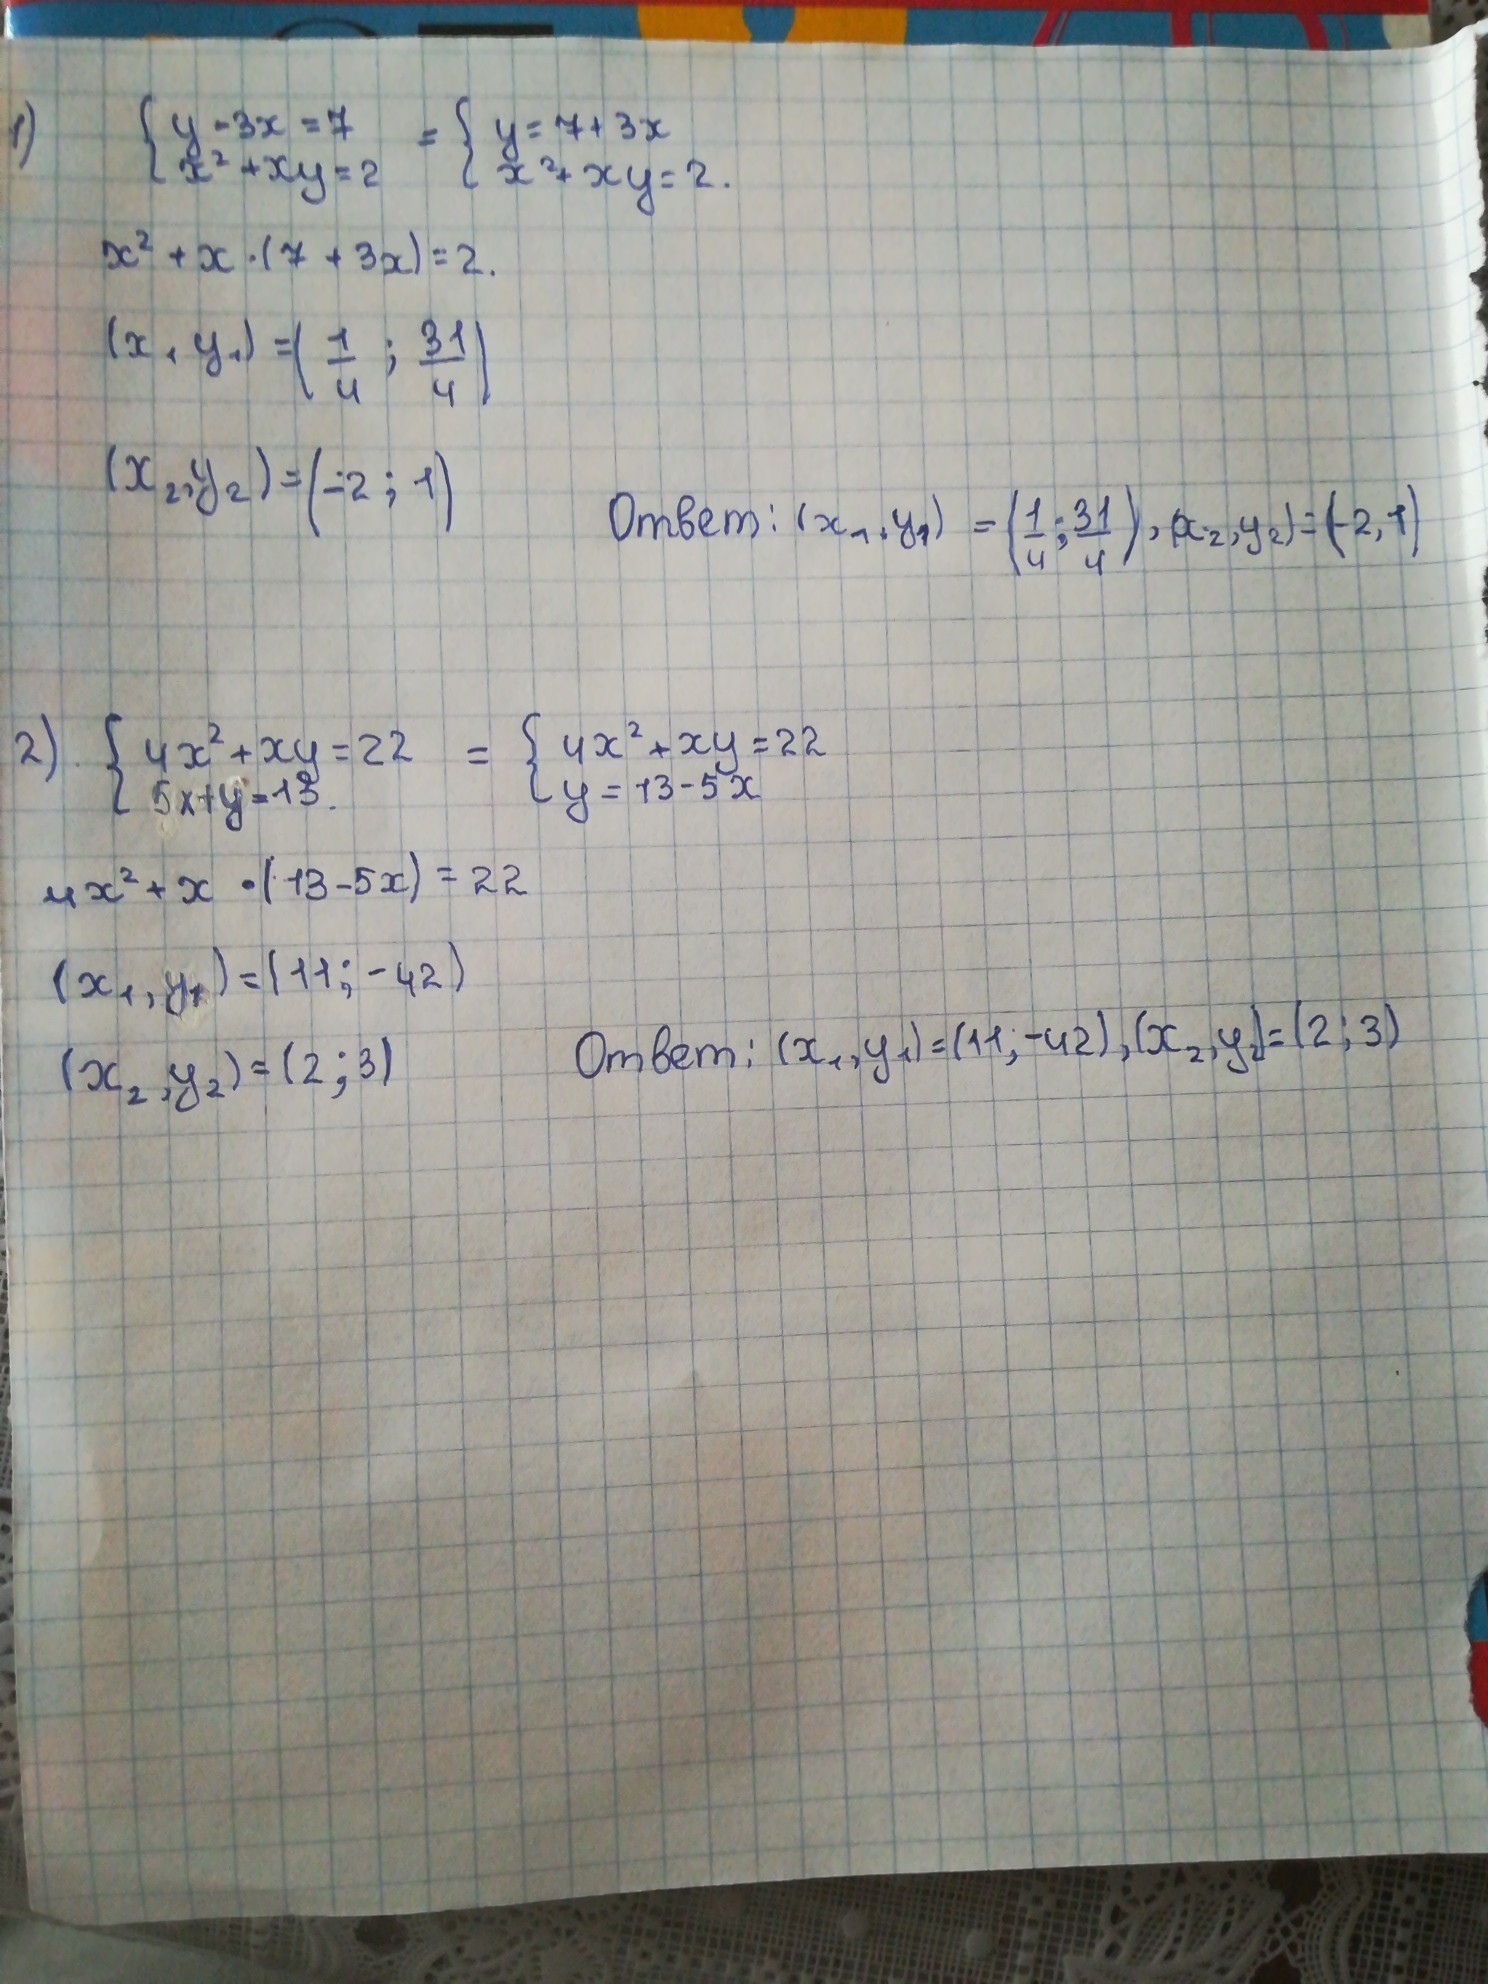 1) { y - 3x = 7 = { y = 7 + 3x
x² + xy = 2 x² + xy = 2.
x² + x · (7 + 3x) = 2.
(x₁ y₁) = (1/4 ; 31/4)
(x₂, y₂) = (-2 ; 1)
Ответ: (x₁, y₁) = (1/4 ; 31/4), (x₂, y₂) = (-2, 1)
2). { 4x² + xy = 22 = { 4x² + xy = 22
5x + y = 13. y = 13 - 5x
4x² + x · (13 - 5x) = 22
(x₁, y₁) = (11 ; -42)
(x₂, y₂) = (2 ; 3)
Ответ: (x₁, y₁) = (11; -42), (x₂, y₂) = (2 ; 3)